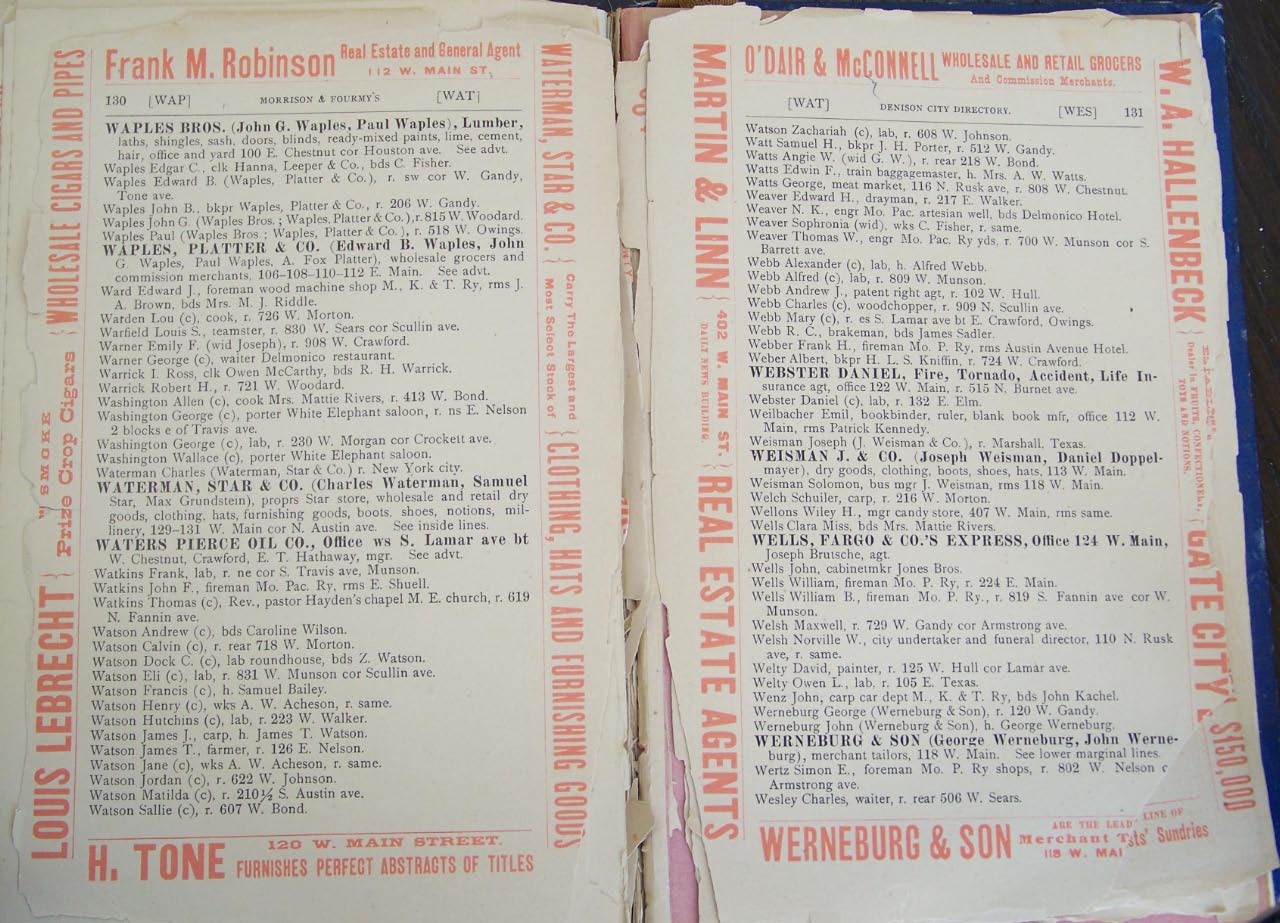 Frank M. Robinson Real Estate and General Agent
112 W. MAIN ST.
130 [WAP] MORRISON & FOURMY'S [WAT]
WAPLES BROS. (John G. Waples, Paul Waples), Lumber,
laths, shingles, sash, doors, blinds, ready-mixed paints, lime, cement,
hair, office and yard 100 E. Chestnut cor Houston ave. See advt.
Waples Edgar C., clk Hanna, Leeper & Co., bds C. Fisher.
Waples Edward B. (Waples, Platter & Co.), r. sw cor W. Gandy,
Tone ave.
Waples John B., bkpr Waples, Platter & Co., r. 206 W. Gandy.
Waples John G. (Waples Bros.; Waples, Platter & Co.), r. 815 W. Woodard.
Waples Paul (Waples Bros.; Waples, Platter & Co.), r. 518 W. Owings.
WAPLES, PLATTER & CO. (Edward B. Waples, John
G. Waples, Paul Waples, A. Fox Platter), wholesale grocers and
commission merchants, 106-108-110-112 E. Main. See advt.
Ward Edward J., foreman wood machine shop M., K. & T. Ry, rms J.
A. Brown, bds Mrs. M. J. Riddle.
Warden Lou (c), cook, r. 726 W. Morton.
Warfield Louis S., teamster, r. 830 W. Sears cor Scullin ave.
Warner Emily F. (wid Joseph), r. 908 W. Crawford.
Warner George (c), waiter Delmonico restaurant.
Warrick I. Ross, clk Owen McCarthy, bds R. H. Warrick.
Warrick Robert H., r. 721 W. Woodard.
Washington Allen (c), cook Mrs. Mattie Rivers, r. 413 W. Bond.
Washington George (c), porter White Elephant saloon, r. ns E. Nelson
2 blocks e of Travis ave.
Washington George (c), lab, r. 230 W. Morgan cor Crockett ave.
Washington Wallace (c), porter White Elephant saloon.
Waterman Charles (Waterman, Star & Co.) r. New York city.
WATERMAN, STAR & CO. (Charles Waterman, Samuel
Star, Max Grundstein), proprs Star store, wholesale and retail dry
goods, clothing, hats, furnishing goods, boots, shoes, notions, mil-
linery, 129-131 W. Main cor N. Austin ave. See inside lines.
WATERS PIERCE OIL CO., Office ws S. Lamar ave bt
W. Chestnut, Crawford, E. T. Hathaway, mgr. See advt.
Watkins Frank, lab, r. ne cor S. Travis ave, Munson.
Watkins John F., fireman Mo. Pac. Ry, rms E. Shuell.
Watkins Thomas (c), Rev., pastor Hayden's chapel M. E. church, r. 619
N. Fannin ave.
Watson Andrew (c), bds Caroline Wilson.
Watson Calvin (c), r. rear 718 W. Morton.
Watson Dock C. (c), lab roundhouse, bds Z. Watson.
Watson Eli (c), lab, r. 831 W. Munson cor Scullin ave.
Watson Francis (c), h. Samuel Bailey.
Watson Henry (c), wks A. W. Acheson, r. same.
Watson Hutchins (c), lab, r. 223 W. Walker.
Watson James J., carp, h. James T. Watson.
Watson James T., farmer, r. 126 E. Nelson.
Watson Jane (c), wks A. W. Acheson, r. same.
Watson Jordan (c), r. 622 W. Johnson.
Watson Matilda (c), r. 210½ S. Austin ave.
Watson Sallie (c), r. 607 W. Bond.
H. TONE 120 W. MAIN STREET.
FURNISHES PERFECT ABSTRACTS OF TITLES
LOUIS LEBRECHT { "SMOKE Prize Crop Cigars } WHOLESALE CIGARS AND PIPES
WATERMAN, STAR & CO. { Carry The Largest and
Most Select Stock of } CLOTHING, HATS AND FURNISHING GOODS
O'DAIR & McCONNELL WHOLESALE AND RETAIL GROCERS
And Commission Merchants.
[WAT] DENISON CITY DIRECTORY. [WES] 131
Watson Zachariah (c), lab, r. 608 W. Johnson.
Watt Samuel H., bkpr J. H. Porter, r. 512 W. Gandy.
Watts Angie W. (wid G. W.), r. rear 218 W. Bond.
Watts Edwin F., train baggagemaster, h. Mrs. A. W. Watts.
Watts George, meat market, 116 N. Rusk ave, r. 808 W. Chestnut.
Weaver Edward H., drayman, r. 217 E. Walker.
Weaver N. K., engr Mo. Pac. artesian well, bds Delmonico Hotel.
Weaver Sophronia (wid), wks C. Fisher, r. same.
Weaver Thomas W., engr Mo. Pac. Ry yds, r. 700 W. Munson cor S.
Barrett ave.
Webb Alexander (c), lab, h. Alfred Webb.
Webb Alfred (c), lab, r. 809 W. Munson.
Webb Andrew J., patent right agt, r. 102 W. Hull.
Webb Charles (c), woodchopper, r. 909 N. Scullin ave.
Webb Mary (c), r. es S. Lamar ave bt E. Crawford, Owings.
Webb R. C., brakeman, bds James Sadler.
Webber Frank H., fireman Mo. P. Ry, rms Austin Avenue Hotel.
Weber Albert, bkpr H. L. S. Kniffin, r. 724 W. Crawford.
WEBSTER DANIEL, Fire, Tornado, Accident, Life In-
surance agt, office 122 W. Main, r. 515 N. Burnet ave.
Webster Daniel (c), lab, r. 132 E. Elm.
Weilbacher Emil, bookbinder, ruler, blank book mfr, office 112 W.
Main, rms Patrick Kennedy.
Weisman Joseph (J. Weisman & Co.), r. Marshall, Texas.
WEISMAN J. & CO. (Joseph Weisman, Daniel Doppel-
mayer), dry goods, clothing, boots, shoes, hats, 113 W. Main.
Weisman Solomon, bus mgr J. Weisman, rms 118 W. Main.
Welch Schuiler, carp, r. 216 W. Morton.
Wellons Wiley H., mgr candy store, 407 W. Main, rms same.
Wells Clara Miss, bds Mrs. Mattie Rivers.
WELLS, FARGO & CO.'S EXPRESS, Office 124 W. Main,
Joseph Brutsche, agt.
Wells John, cabinetmkr Jones Bros.
Wells William, fireman Mo. P. Ry, r. 224 E. Main.
Wells William B., fireman Mo. P. Ry., r. 819 S. Fannin ave cor W.
Munson.
Welsh Maxwell, r. 729 W. Gandy cor Armstrong ave.
Welsh Norville W., city undertaker and funeral director, 110 N. Rusk
ave, r. same.
Welty David, painter, r. 125 W. Hull cor Lamar ave.
Welty Owen L., lab, r. 105 E. Texas.
Wenz John, carp car dept M., K. & T. Ry, bds John Kachel.
Werneburg George (Werneburg & Son), r. 120 W. Gandy.
Werneburg John (Werneburg & Son), h. George Werneburg.
WERNEBURG & SON (George Werneburg, John Werne-
burg), merchant tailors, 118 W. Main. See lower marginal lines.
Wertz Simon E., foreman Mo. P. Ry shops, r. 802 W. Nelson c
Armstrong ave.
Wesley Charles, waiter, r. rear 506 W. Sears.
WERNEBURG & SON ARE THE LEAD LINE OF
Merchant Sundries
118 W. MAI
MARTIN & LINN { 402 W. MAIN ST.
DAILY NEWS BUILDING. } REAL ESTATE AGENTS
W. A. HALLENBECK {
Dealer in FRUITS, CONFECTIONERS,
TOYS AND NOTIONS. } GATE CITY $150,000